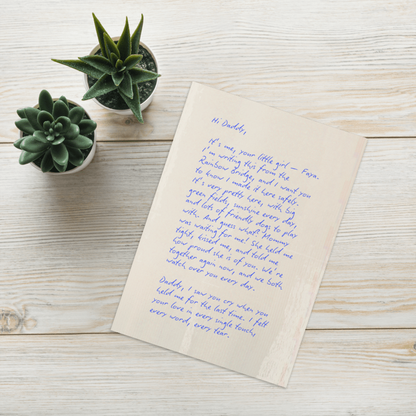 Hi Daddy,
It's me, your little girl — Faya.
I'm writing this from the
Rainbow Bridge, and I want you
to know I made it here safely.
It's very pretty here, with big
green fields, sunshine every day,
and lots of friendly dogs to play
with. And guess what? Mommy
was waiting for me! She held me
tight, kissed me, and told me
how proud she is of you. We're
together again now, and we both
watch over you every day.
Daddy, I saw you cry when you
held me for the last time. I felt
your love in every single touch,
every word, every tear.